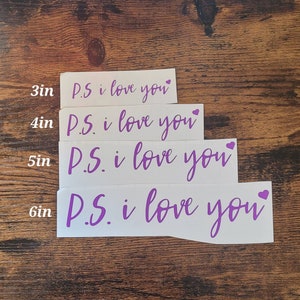 3in P.S. i love you
4in P.S. i love you
5in P.S. i love you
6in P.S. i love you